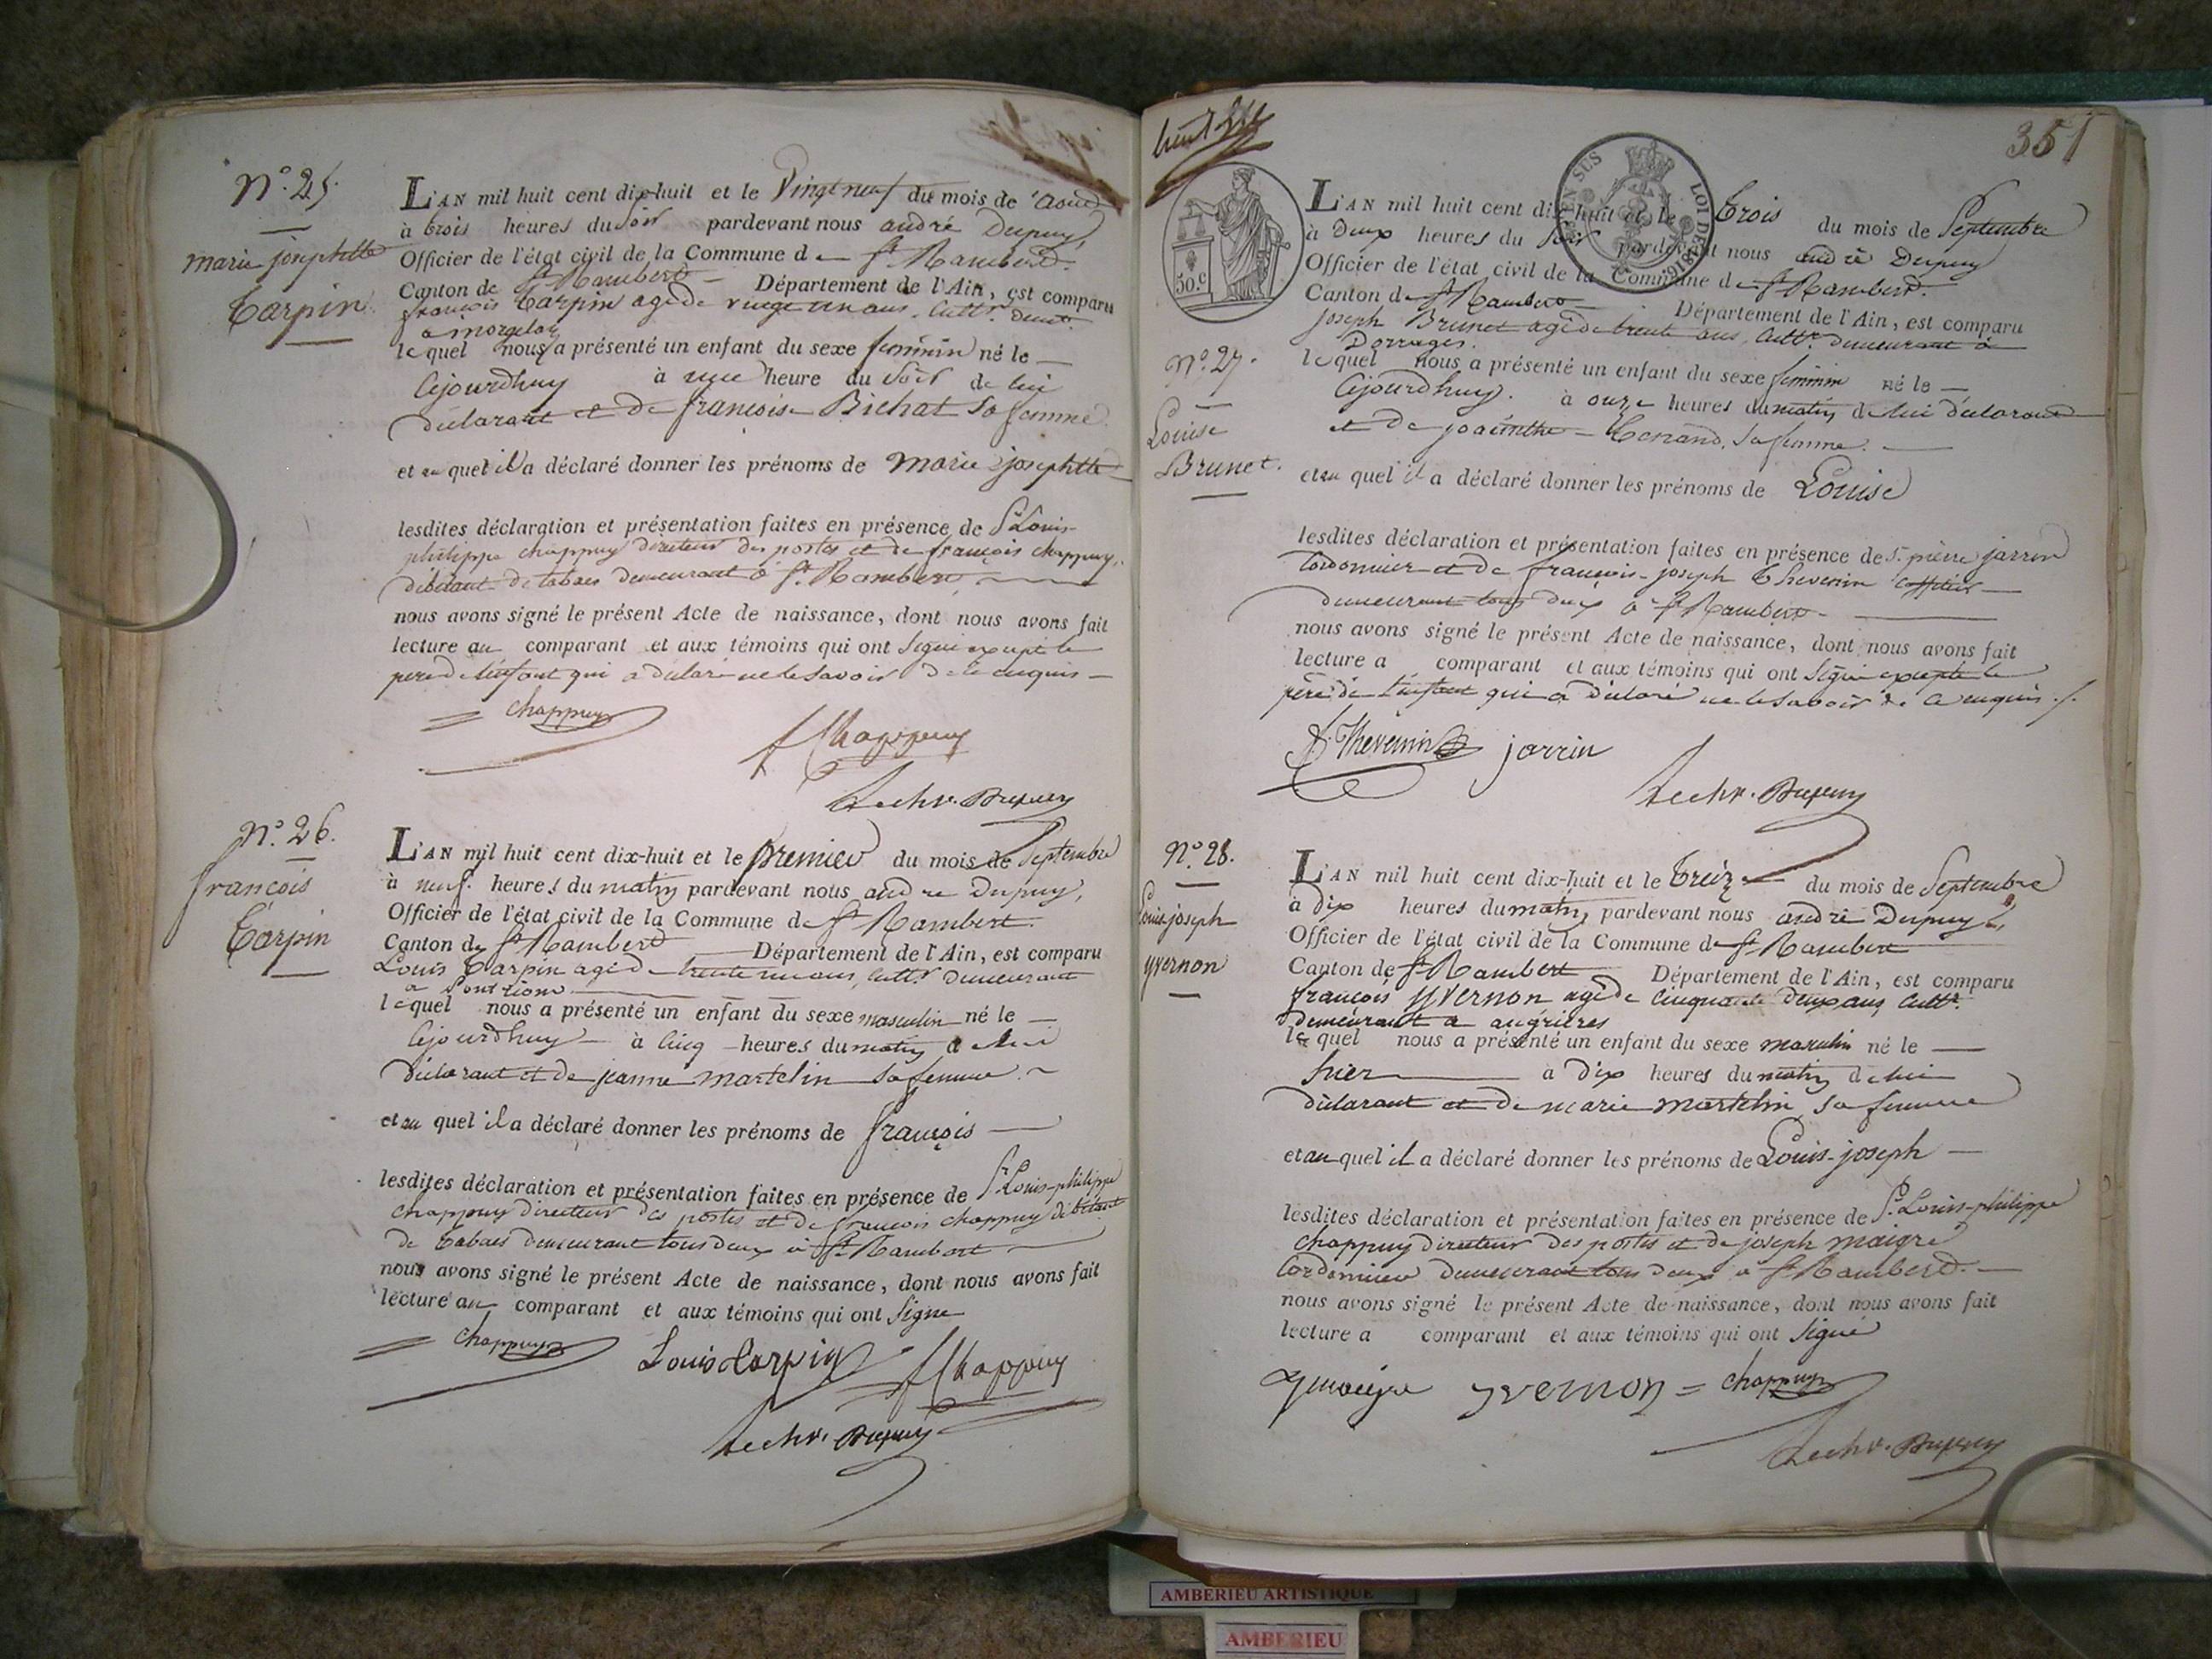 N.° 25.
marie josephtte
Carpin
L'AN mil huit cent dix-huit et le Vingt neuf du mois de Aoud
à trois heures du soir pardevant nous andré Dupuy,
Officier de l'état civil de la Commune de St Rambert.
Canton de St Rambert Département de l'Ain, est comparu
françois Carpin agé de vingt un ans, cultr. demt.
a morgelas
lequel nous a présenté un enfant du sexe feminin né le
cejourdhuy à une heure du soir de lui
déclarant et de françoise Bichat sa femme
et au quel il a déclaré donner les prénoms de Marie josephtte
lesdites déclaration et présentation faites en présence de Sr Louis
philippe chappuy directeur des postes et de françois chappuy,
débitant de tabacs demeurant à St. Rambert,
nous avons signé le présent Acte de naissance, dont nous avons fait
lecture au comparant et aux témoins qui ont signé excepté le
pere de l'enfant qui a déclaré ne le savoir de ce enquis
chappuy
f Chappuy
Dupuy
N.° 26.
françois
Carpin
L'AN mil huit cent dix-huit et le premier du mois de Septembre
à neuf heures du matin pardevant nous andre Dupuy,
Officier de l'état civil de la Commune de St Rambert
Canton de St Rambert Département de l'Ain, est comparu
Louis Carpin agé de trente un ans, cultr. demeurant
a
lequel nous a présenté un enfant du sexe masculin né le
cejourdhuy à cinq heures du matin de lui
déclarant et de jeanne martelin sa femme
et au quel il a déclaré donner les prénoms de françois
lesdites déclaration et présentation faites en présence de Sr. Louis-philippe
chappuy directeur des postes et de françois chappuy débitant
de tabacs demeurant tous deux à St Rambert
nous avons signé le présent Acte de naissance, dont nous avons fait
lecture au comparant et aux témoins qui ont Signe
chappuy Louis Carpin f Chappuy
Dupuy
351
TIMBRE
EN SUS
LOI DE 1816
50.c
L'AN mil huit cent dix-huit et le trois du mois de Septembre
à Deux heures du soir pardevant nous andré Dupuy
Officier de l'état civil de la Commune de St Rambert.
Canton de St Rambert Département de l'Ain, est comparu
joseph Brunet agé de trente ans, cultr. demeurant à
Dorvages.
N.° 27.
Louise
Brunet.
lequel nous a présenté un enfant du sexe feminin né le
cejourdhuy. à onze heures du matin de lui déclarant
et de joacinthe Tenand, sa femme.
et au quel il a déclaré donner les prénoms de Louise
lesdites déclaration et présentation faites en présence de Sr. pierre jarrin
Cordonnier et de françois-joseph Thevenin
demeurant tous deux à St Rambert
nous avons signé le présent Acte de naissance, dont nous avons fait
lecture a comparant et aux témoins qui ont signé excepté le
père de l'enfant qui a déclaré ne le savoir de ce enquis ./.
Thevenin jarrin
Dupuy
N.° 28.
Louis joseph
yvernon
L'AN mil huit cent dix-huit et le treize du mois de Septembre
à dix heures du matin pardevant nous andré Dupuy,
Officier de l'état civil de la Commune de St Rambert
Canton de St Rambert Département de l'Ain, est comparu
françois yvernon agé de cinquante deux ans, cultr.
demeurant a angrieres
lequel nous a présenté un enfant du sexe masculin né le
hier à dix heures du matin de lui
déclarant et de marie martelin, sa femme
et au quel il a déclaré donner les prénoms de Louis-joseph
lesdites déclaration et présentation faites en présence de Sr. Louis-philippe
chappuy directeur des postes et de joseph maigre
Cordonnier demeurant tous deux a St Rambert.
nous avons signé le présent Acte de naissance, dont nous avons fait
lecture a comparant et aux témoins qui ont signé
yvernon chappuy
Dupuy
AMBERIEU ARTISTIQUE
AMBERIEU